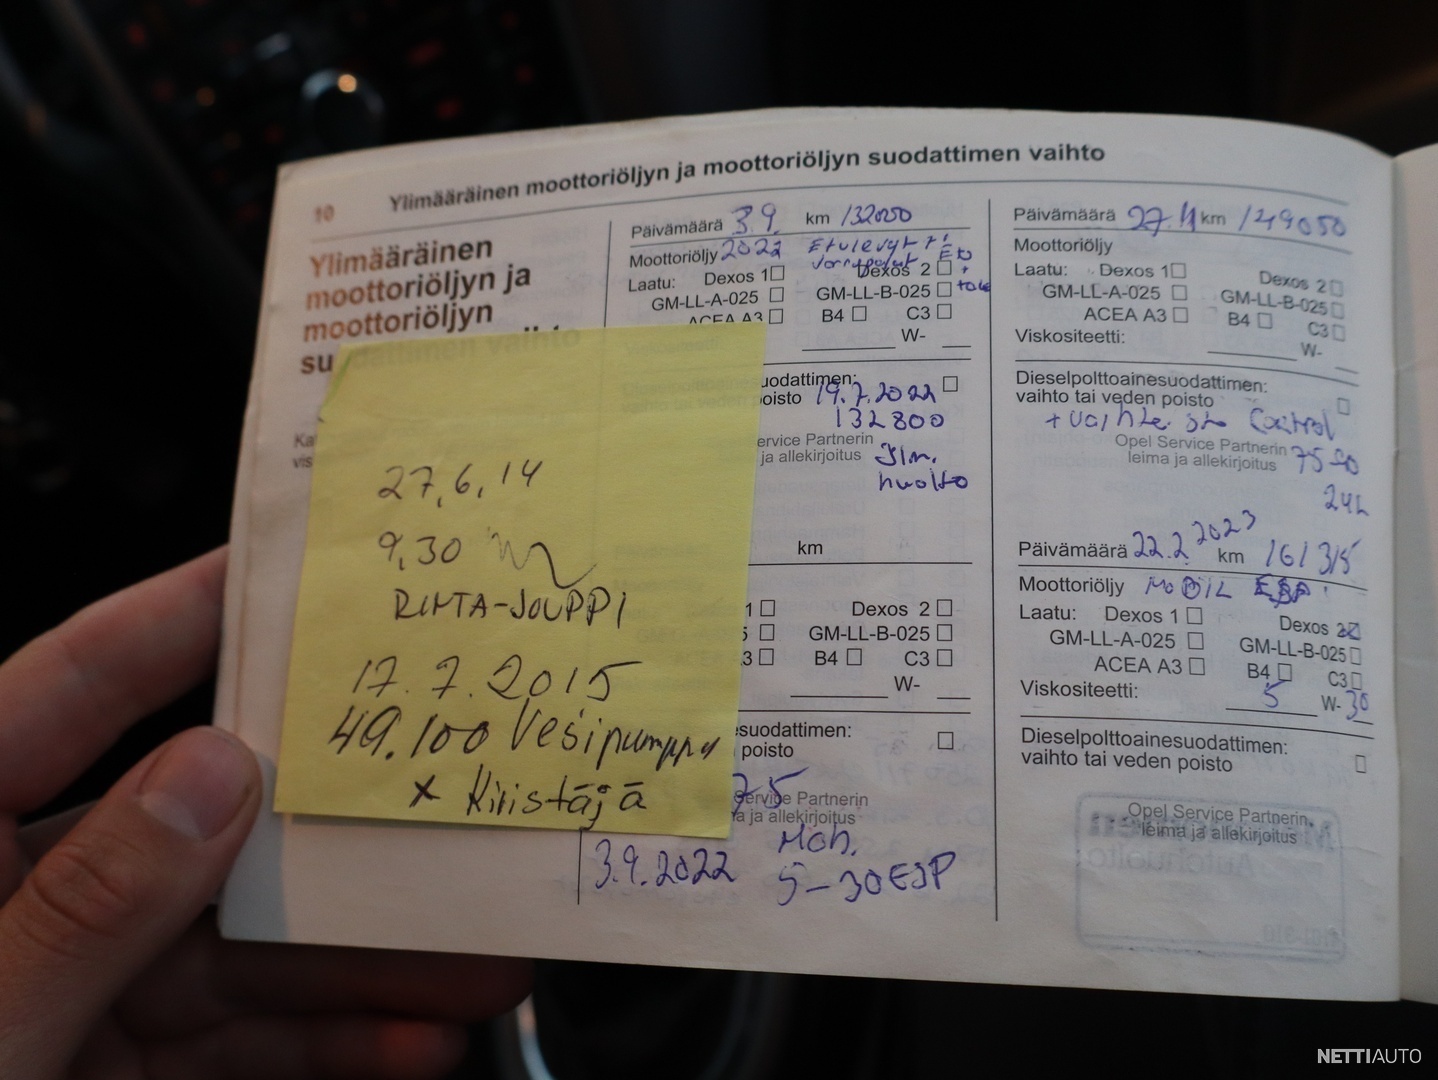 10 Ylimääräinen moottoriöljyn ja moottoriöljyn suodattimen vaihto
Ylimääräinen
moottoriöljyn ja
moottoriöljyn
su
Ka
vis
27,6,14
9,30
RINTA-JOUPPI
17.7.2015
49.100 Vesipumppu
x Kiristäjä
Päivämäärä 3.9. km 132000
Moottoriöljy 2022 Etulevyt
Laatu: Dexos 1 Dexos 2
GM-LL-A-025 GM-LL-B-025
ACEA A3 B4 C3
W-
uodattimen:
oisto 19.7.2022
132800
ervice Partnerin
ja allekirjoitus Ilm.
huolto
km
1 Dexos 2
5 GM-LL-B-025
A3 B4 C3
W-
esuodattimen:
poisto
75
Service Partnerin
a ja allekirjoitus
Mob.
3.9.2022 5-30 ESP
Päivämäärä 27.11 km 149050
Moottoriöljy
Laatu: Dexos 1 Dexos 2
GM-LL-A-025 GM-LL-B-025
ACEA A3 B4 C3
Viskositeetti: W-
Dieselpolttoainesuodattimen:
vaihto tai veden poisto
+ vaihte
Opel Service Partnerin
leima ja allekirjoitus 75
Päivämäärä 22.2.2023 km 161315
Moottoriöljy MOBIL ESP
Laatu: Dexos 1 Dexos 2
GM-LL-A-025 GM-LL-B-025
ACEA A3 B4 C3
Viskositeetti: 5 W- 30
Dieselpolttoainesuodattimen:
vaihto tai veden poisto
Opel Service Partnerin
leima ja allekirjoitus
NETTIAUTO